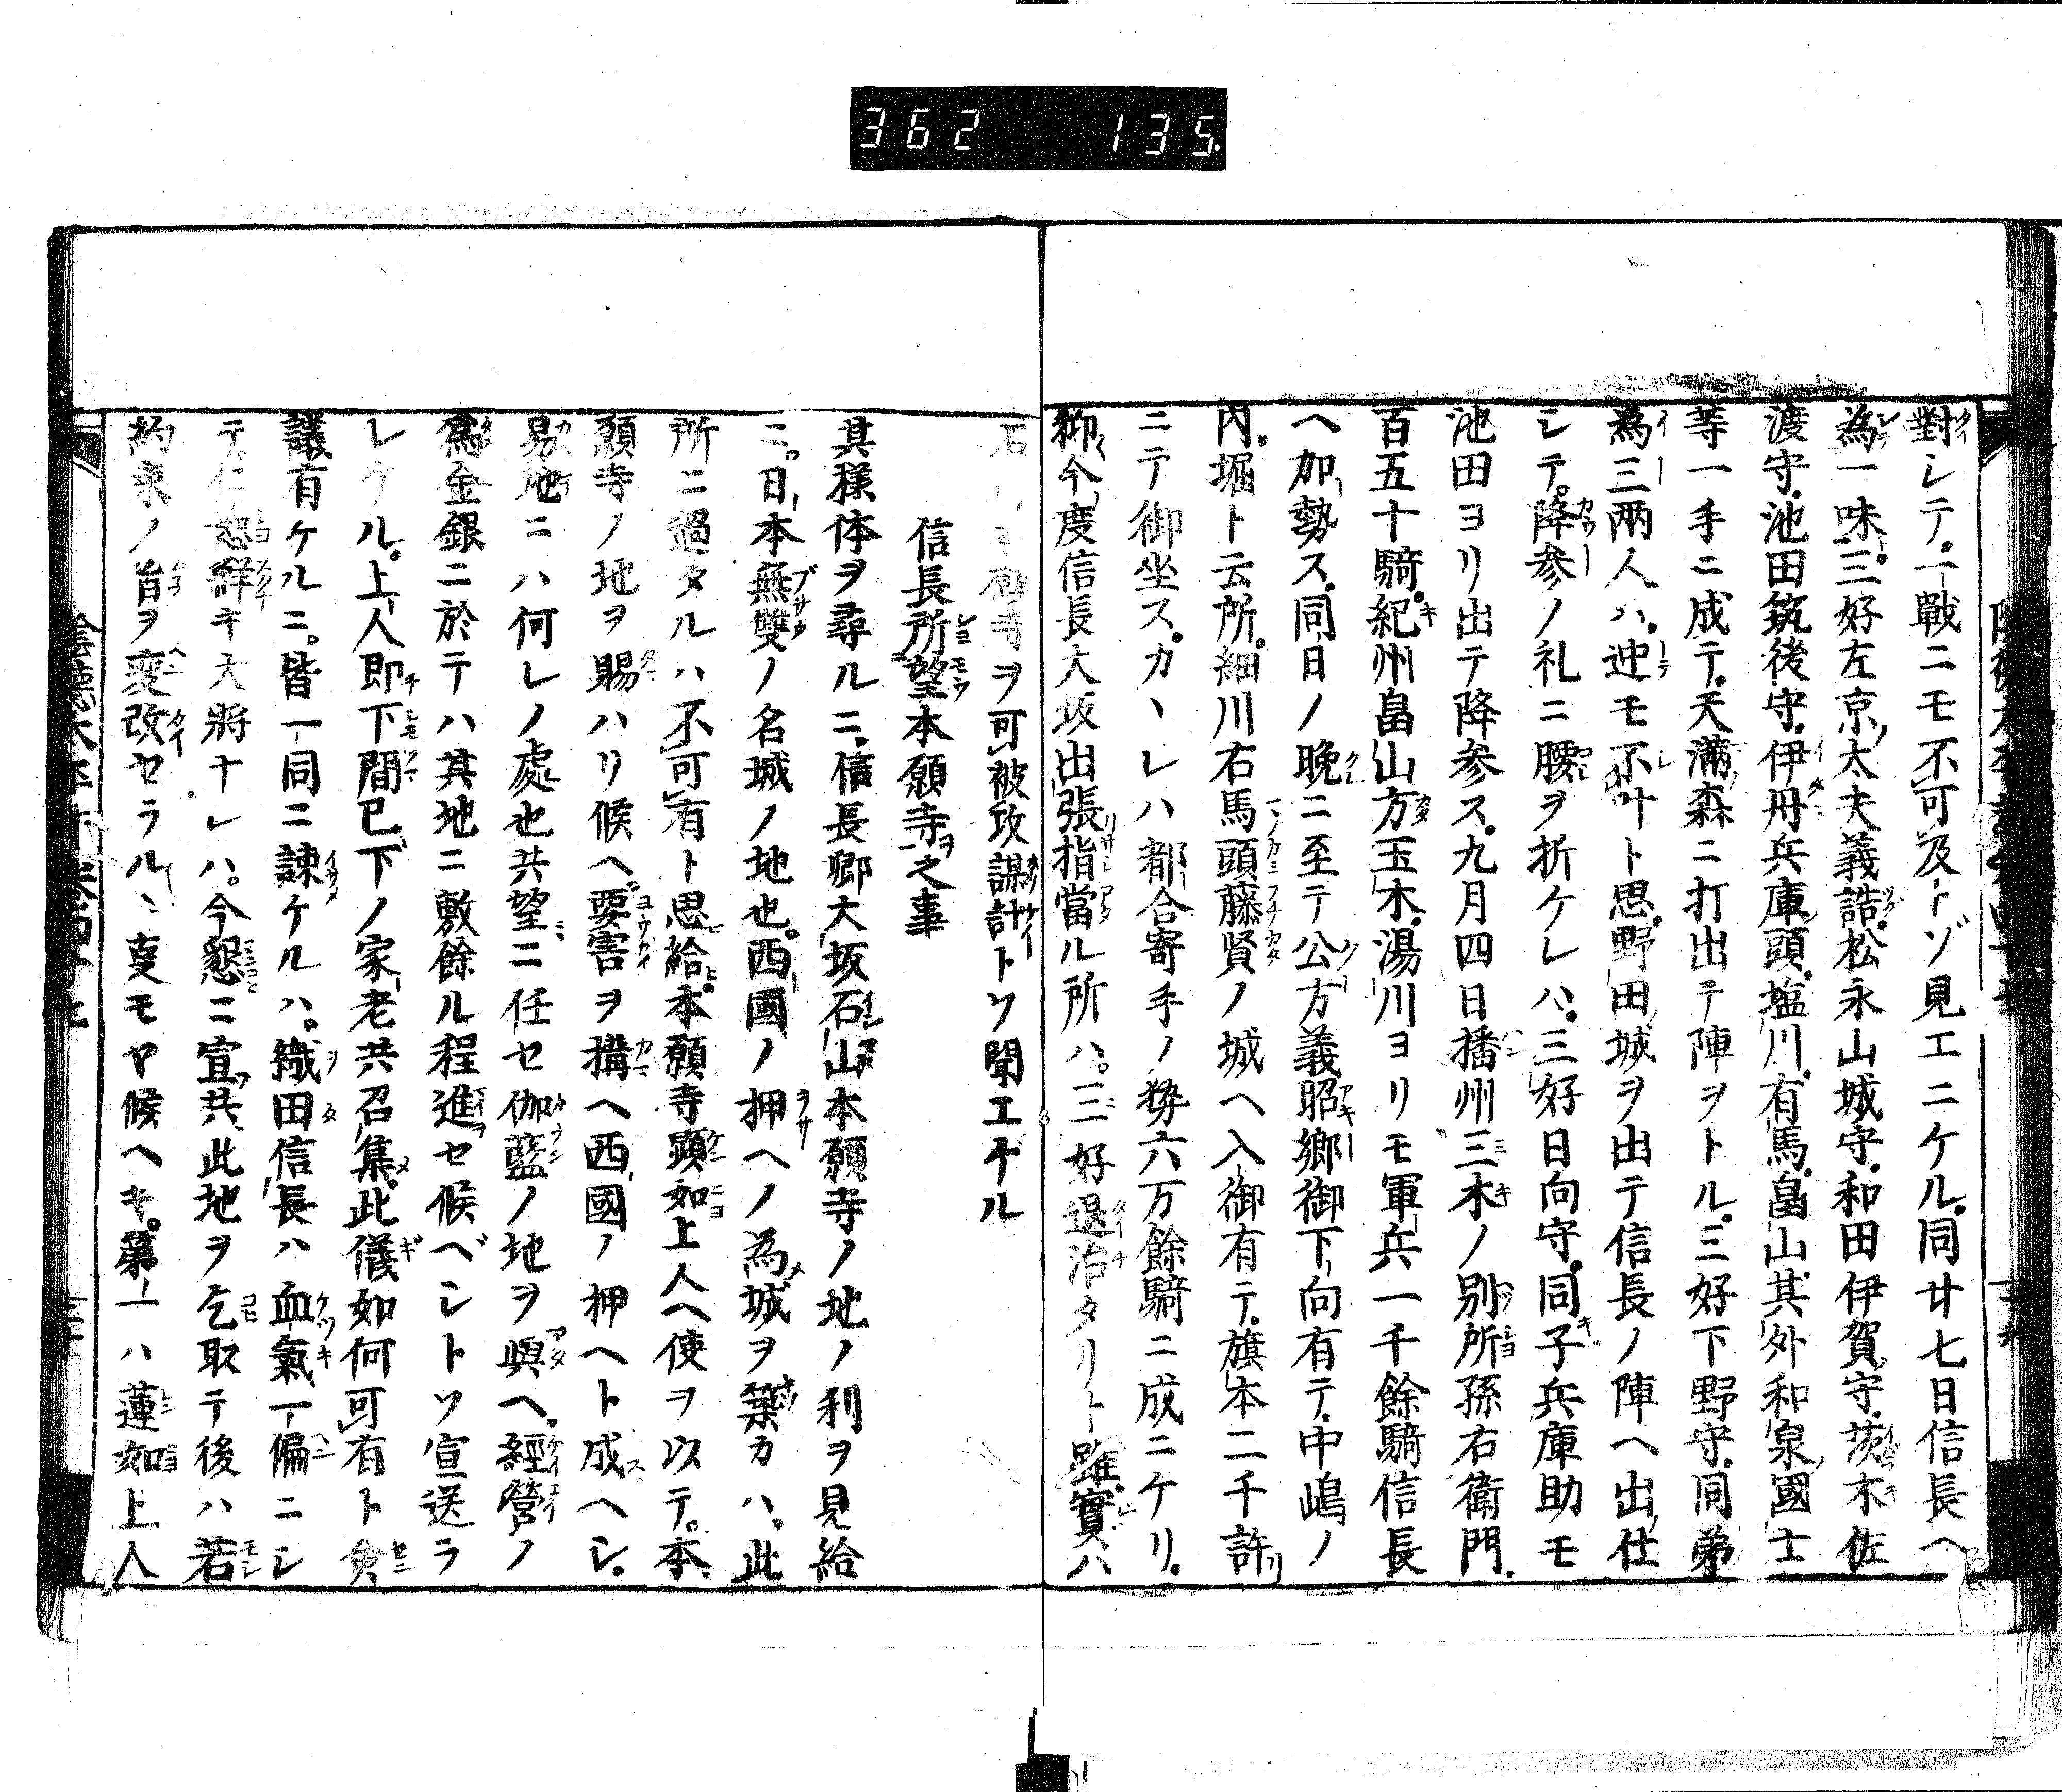 362 135.
對シテ一戰ニモ不可及トゾ見エニケル同廿七日信長ヘ
為一味三好左京太夫義誥松永山城守和田伊賀守茨木佐
渡守池田筑後守伊丹兵庫頭塩川有馬畠山其外和泉國士
等一手ニ成テ天滿森ニ打出テ陣ヲトル三好下野守同弟
為三兩人ハ迚モ不叶ト思野田城ヲ出テ信長ノ陣ヘ出仕
シテ降参ノ礼ニ腰ヲ折ケレハ三好日向守同子兵庫助モ
池田ヨリ出テ降参ス九月四日播州三木ノ別所孫右衛門
百五十騎紀州畠山方玉木湯川ヨリモ軍兵一千餘騎信長
ヘ加勢ス同日ノ晩ニ至テ公方義昭郷御下向有テ中嶋ノ
内堀ト云所細川右馬頭藤賢ノ城ヘ入御有テ旗本二千許
ニテ御坐スカヽレハ都合寄手ノ勢六万餘騎ニ成ニケリ
抑今度信長大坂出張指當ル所ハ三好退治タリト雖實ハ
石山本願寺ヲ可被攻謀計トソ聞エケル
信長所望本願寺之事
其様体ヲ尋ルニ信長卿大坂石山本願寺ノ地ノ利ヲ見給
ニ日本無雙ノ名城ノ地也西國ノ押ヘノ為城ヲ築カハ此
所ニ過タルハ不可有ト思給本願寺顕如上人ヘ使ヲ以テ本
願寺ノ地ヲ賜ハリ候ヘ要害ヲ構ヘ西國ノ押ヘト成ヘシ
易地ニハ何レノ處也共望ニ任セ伽藍ノ地ヲ與ヘ經營ノ
為金銀ニ於テハ其地ニ敷餘ル程進セ候ベシトソ宣送ラ
レケル上人即下間已下ノ家老共召集此儀如何可有ト僉
議有ケルニ皆一同ニ諫ケルハ織田信長ハ血氣一偏ニシ
テ仁恕鮮キ大將ナレハ今懇ニ宣共此地ヲ乞取テ後ハ若
約束ノ旨ヲ変改セラルヽ叓モヤ候ヘキ第一ハ蓮如上人